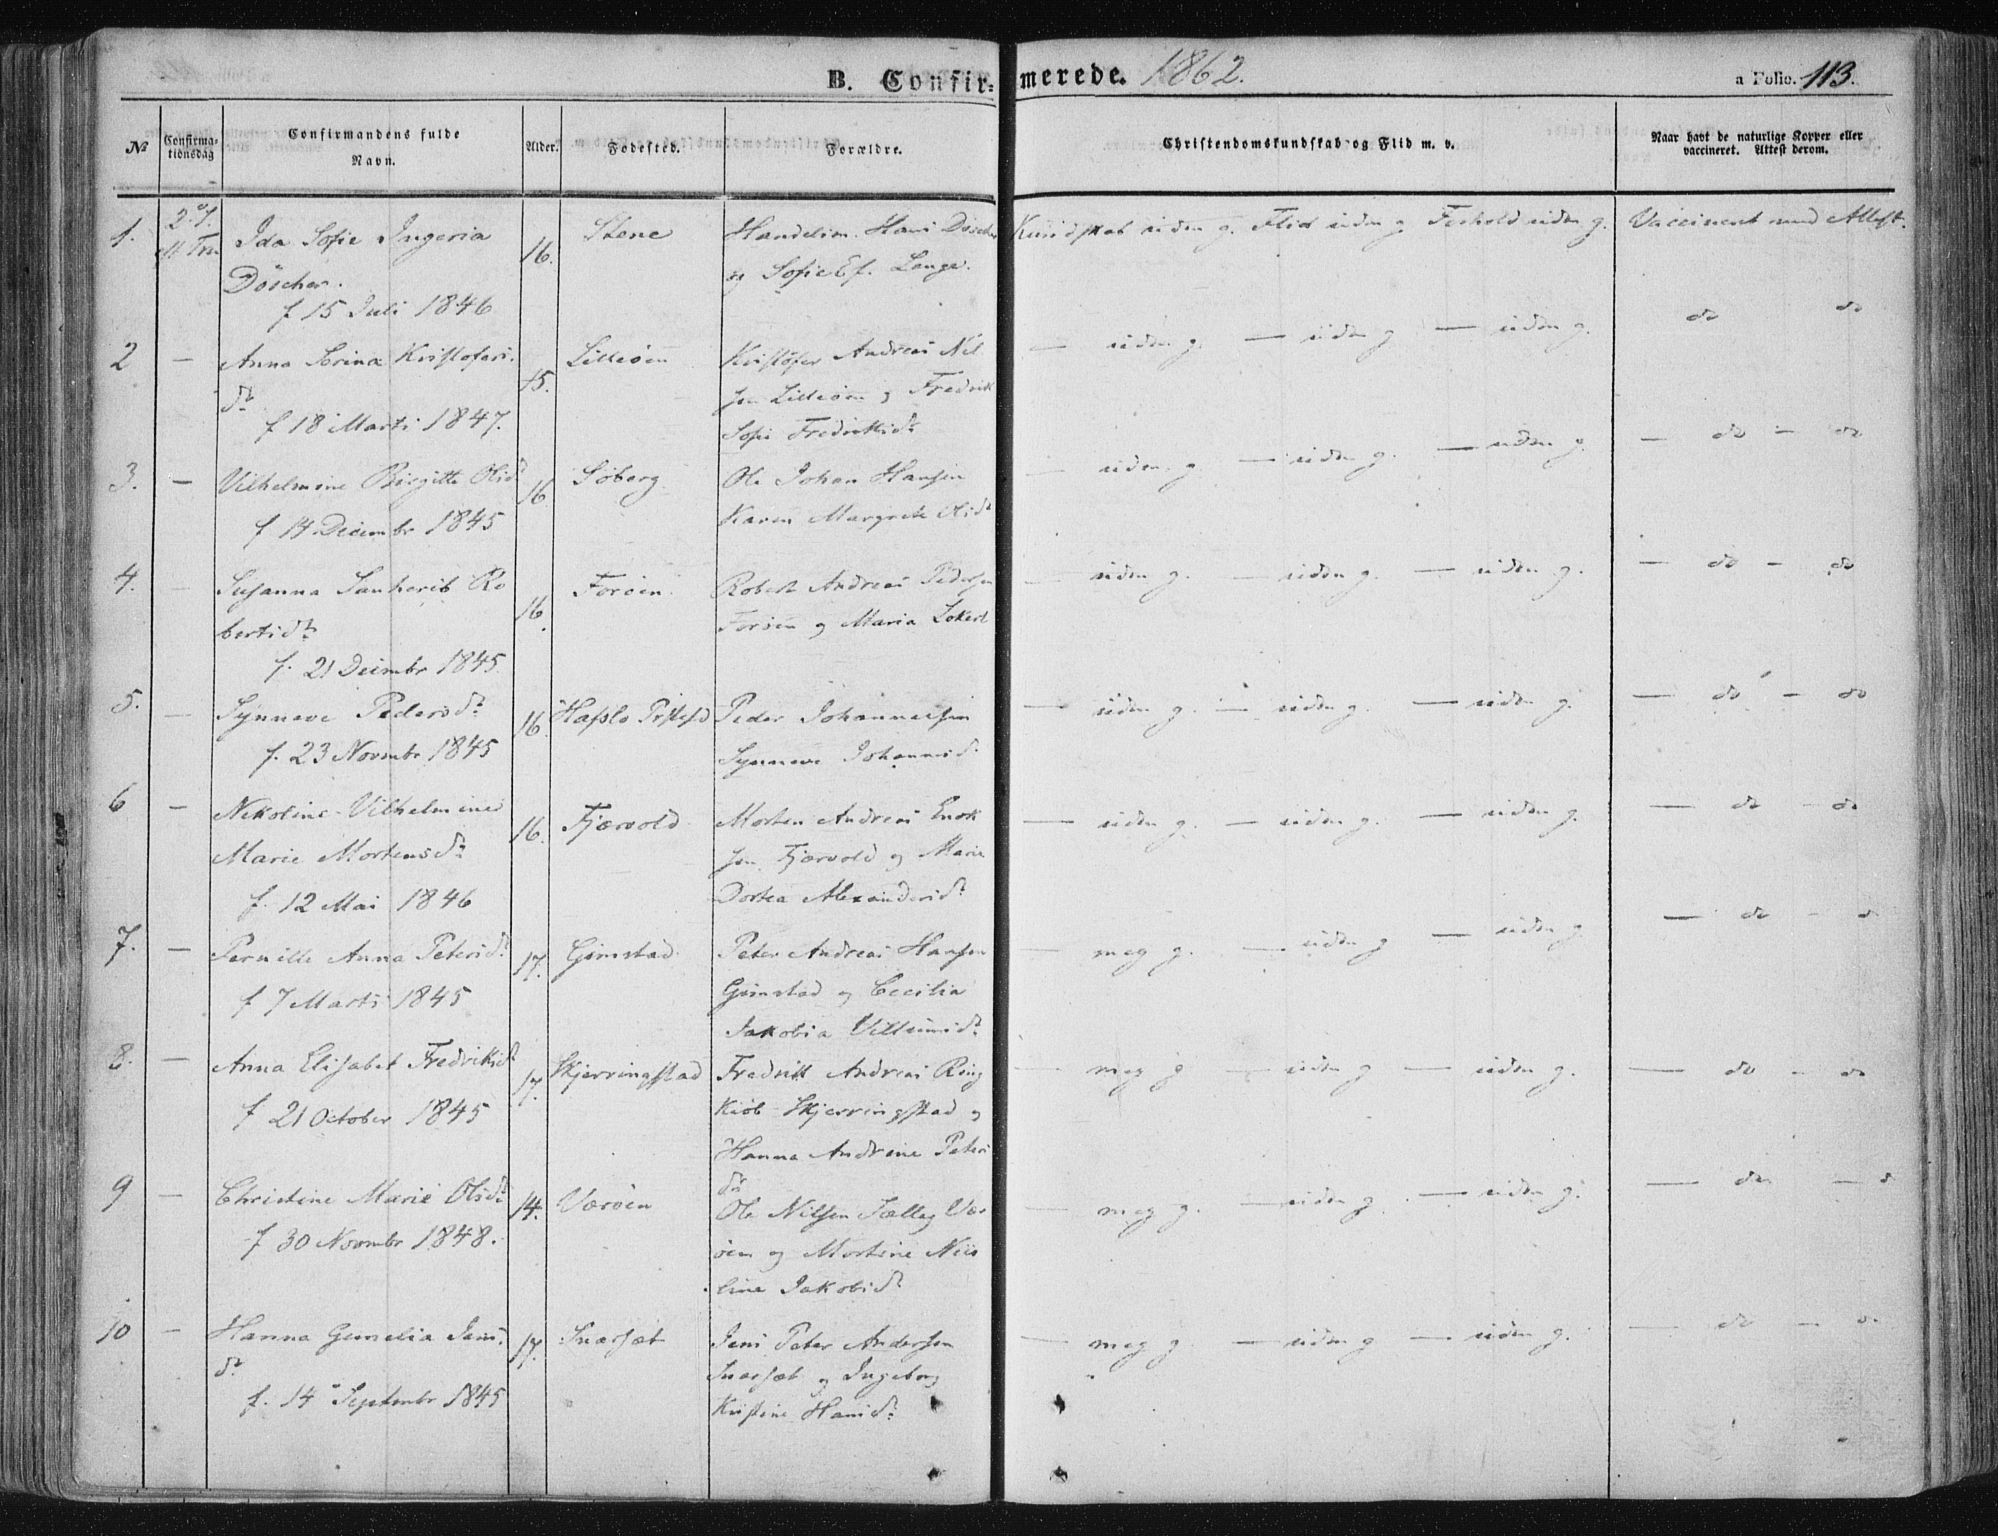 B. Confir-
merede. 1862.
a Folio. 113.
№
Confirma-
tionsdag
Confirmandens fulde
Navn.
Alder.
Fødested.
Forældre.
Christendomskundskab og Flid m. v.
Naar havt de naturlige Kopper eller
vaccineret. Attest derom.
1.
Ida Sofie Ingeria
Döscher.
f 15 Juli 1846
16.
Stene
Hans Döscher
og Sofie Lange.
Kundskab g. Flid g. Forhold g.
Vaccineret med Attest.
2 —
Anna Kristofers
dr
f 18 Marts 1847.
15.
Lilleöen
Kristofer Andreas Nil
sen Lilleöen og Fredrik
Sofie Fredriksdr
— g. — g — g.
do do
3. —
Vilhelmine Birgitte Olsdr
f 14 Decembr 1845
16
Söberg
Ole Johan Hansen
Karen Margrete Olsdr
— g. — g. — g.
— do — do
4. —
Susanna Sanherib Ro
bertsdr
f. 21 Decembr 1845
16.
Foröen
Robert Andreas Pedersen
Foröen og Maria
— g. — g. — g.
— do — do
5. —
Synneve Pedersdr
f. 23 Novembr 1845
16.
Hafslo Prstgld
Peder Johannessen
Synneve Johannesdr
— g. — g. — g.
— do — do
6 —
Nikoline Vilhelmine
Marie Mortensdr
f. 12 Mai 1846
16.
Fjærvold
Morten Andreas Enok
sen Fjærvold og Marie
Dortea Alexandersdr
— g. — g. — g.
— do — do
7. —
Pernille Anna Petersdr
f 7 Marts 1845
17.
Gimstad
Peter Andreas Hansen
Gimstad og Cecilia
Jakobia Villumsdr
— meg g. — g — g
— do — d
8. —
Anna Elisabet Fredriksdr
f 21 October 1845
17.
Skjerringstad
Fredrik Andreas Ring
kiöb Skjerringstad og
Hanna Andrine Peters
dr
— meg g — g — g.
— do — do
9 —
Christine Marie Olsdr
f 30 Novembr 1848.
14.
Væröen
Ole Nilsen Vær
öen og Mortine Nils
line Jakobsdr
— meg g. — g. — g.
— do — d
10 —
Hanna Jens
dr
f. 14 Septembr 1845
17.
Snarset
Jens Peter Andersen
Snarset og Ingeborg
Kristine Hansdr
— meg g — g — g.
— do — d.